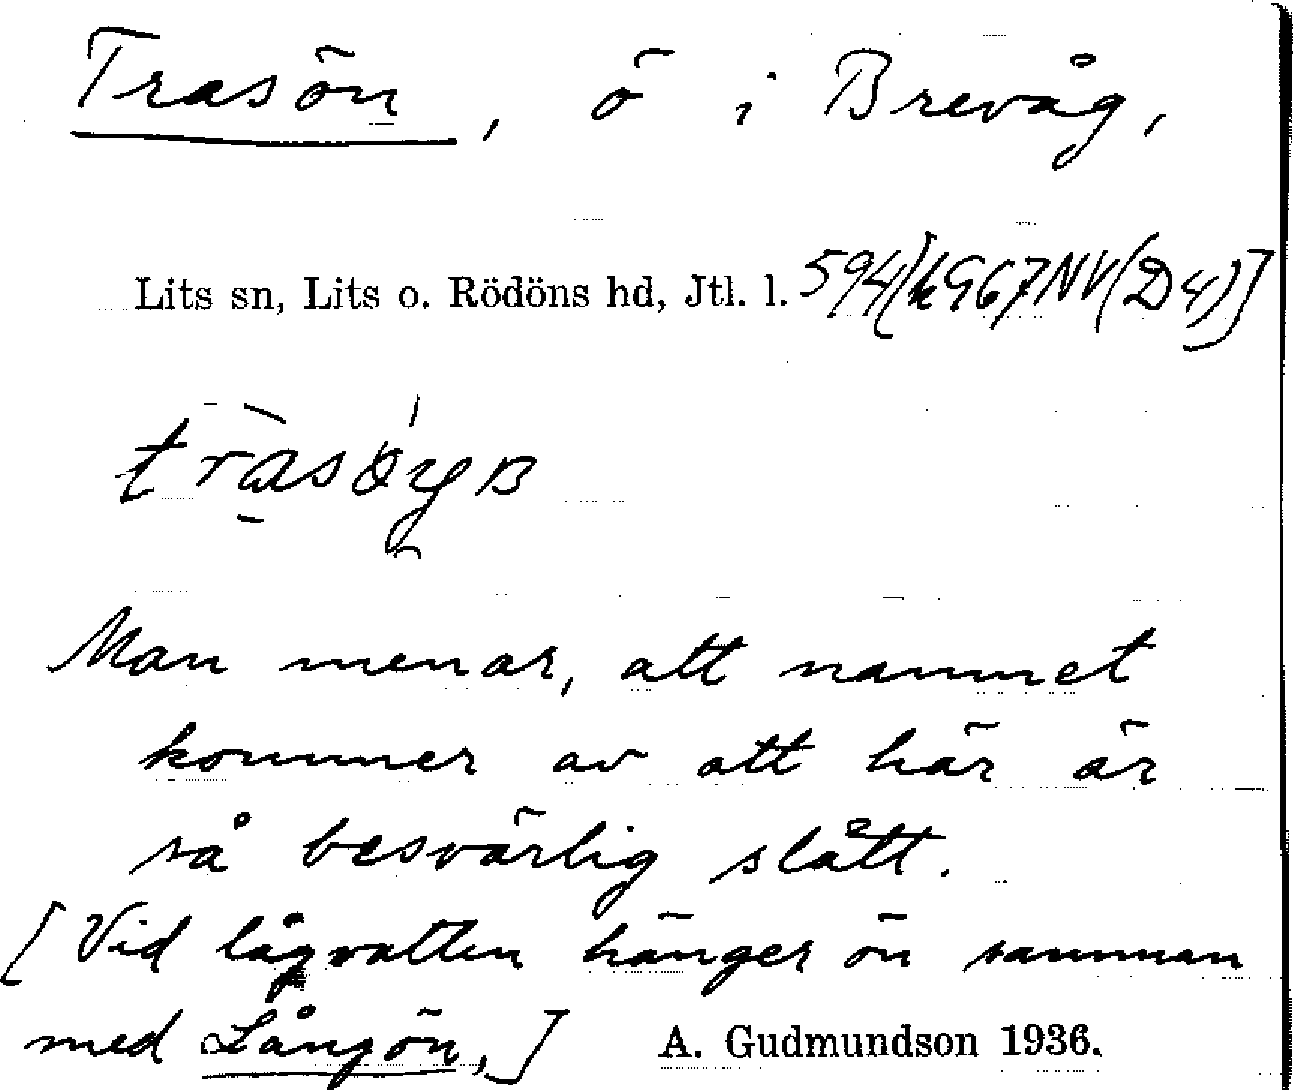 Trasön, ö i Brevåg,
Lits sn, Lits o. Rödöns hd, Jtl. l. 594[k967NV(D4)]
Man menar, att namnet
kommer av att här är
så besvärlig slått.
[Vid lågvatten hänger ön samman
med Långön,] A. Gudmundson 1936.